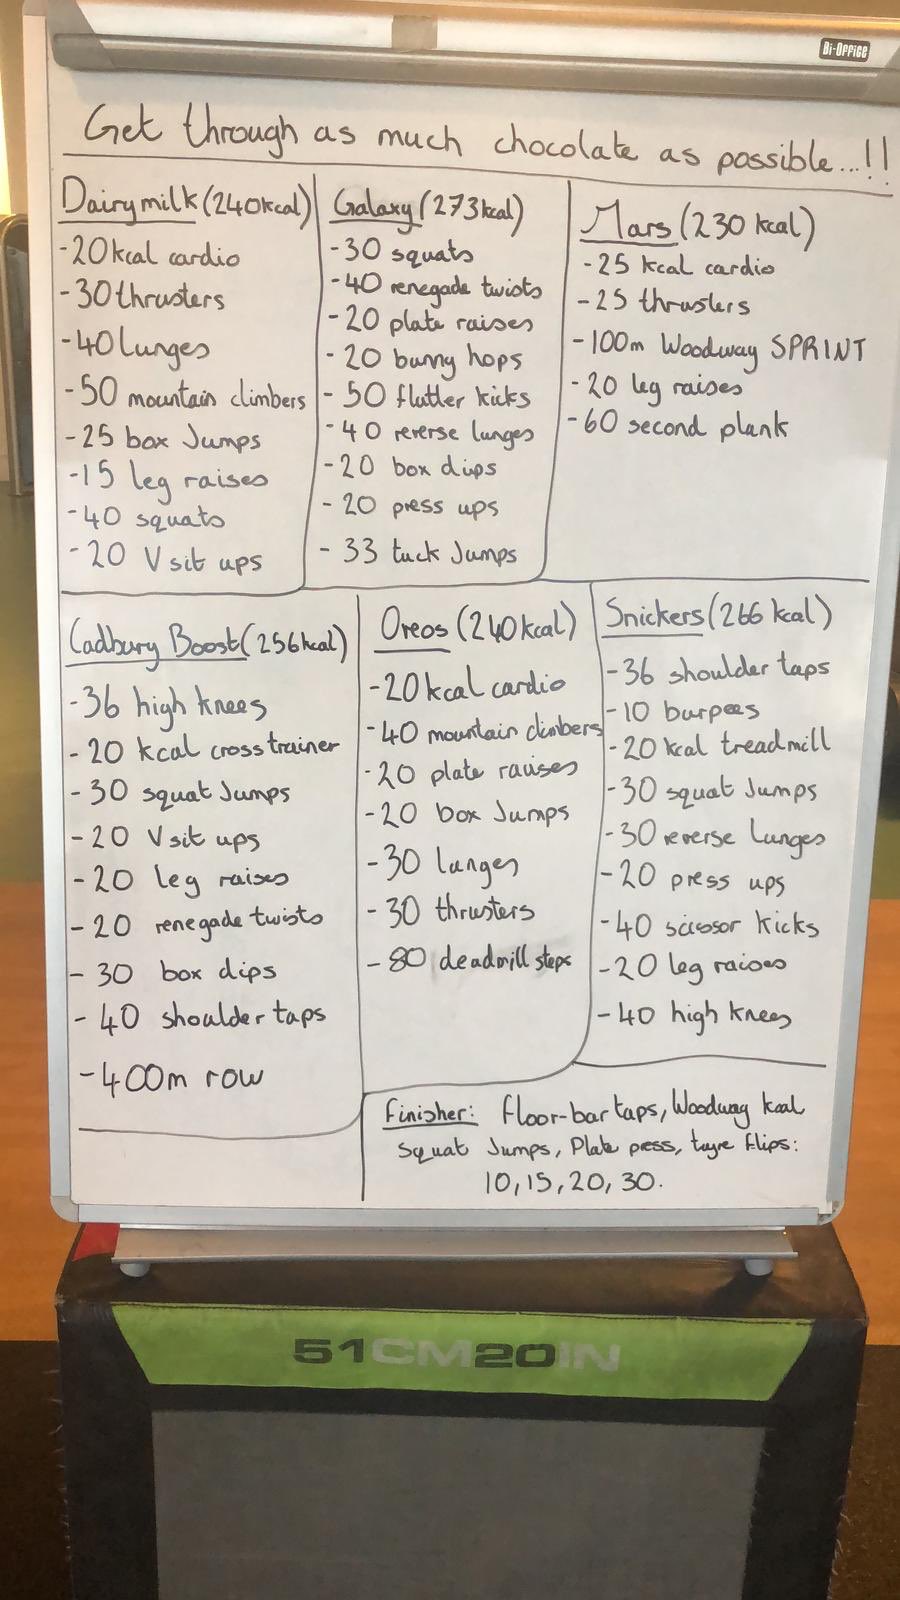 Bi-Office
Get through as much chocolate as possible...!!
Dairymilk (240kcal)
-20kcal cardio
-30 thrusters
-40 Lunges
-50 mountain climbers
-25 box Jumps
-15 leg raises
-40 squats
-20 V sit ups
Galaxy (273kcal)
-30 squats
-40 renegade twists
-20 plate raises
-20 bunny hops
-50 flutter kicks
-40 reverse lunges
-20 box dips
-20 press ups
-33 tuck Jumps
Mars (230 kcal)
-25 kcal cardio
-25 thrusters
-100m Woodway SPRINT
-20 leg raises
-60 second plank
Cadbury Boost (256kcal)
-36 high knees
-20 kcal cross trainer
-30 squat Jumps
-20 V sit ups
-20 leg raises
-20 renegade twists
-30 box dips
-40 shoulder taps
-400m row
Oreos (240kcal)
-20kcal cardio
-40 mountain climbers
-20 plate raises
-20 box Jumps
-30 lunges
-30 thrusters
-80 deadmill steps
Snickers (266 kcal)
-36 shoulder taps
-10 burpees
-20 kcal treadmill
-30 squat Jumps
-30 reverse Lunges
-20 press ups
-40 scissor kicks
-20 leg raises
-40 high knees
Finisher: Floor-bar taps, Woodway kcal
Squat Jumps, Plate press, tyre flips:
10, 15, 20, 30.
51CM20IN